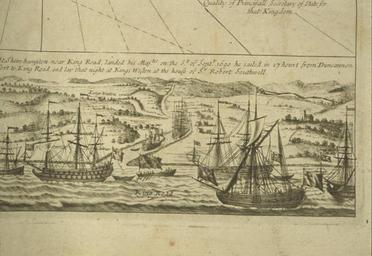 Quality of Principall Secretary of State for
that Kingdom.
hampton near King Road, landed his Maj.tie on the 5.th of Sept.r 1690 he sailed in 17 hours from Duncannon
fort to King Road, and lay that night at Kings Weston at the house of S.r Robert Southwell.
King Road